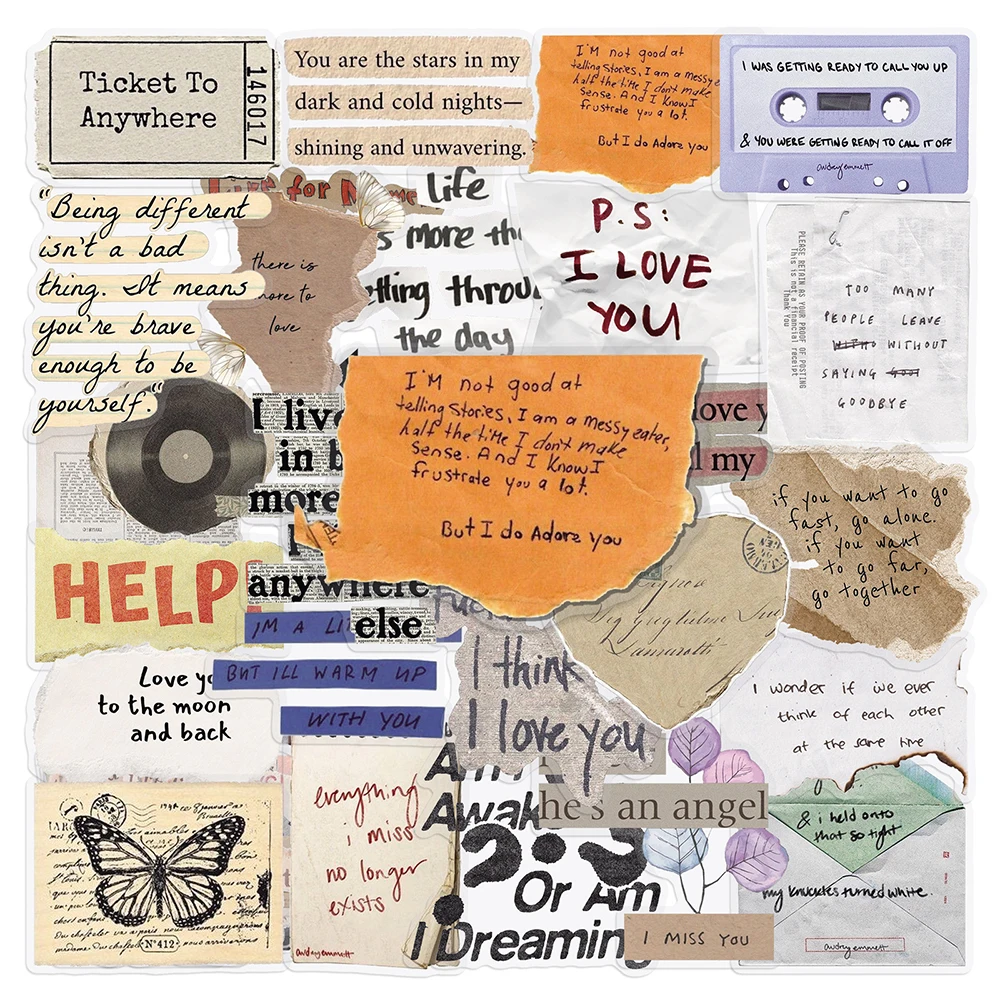 Ticket To
Anywhere
146017
You are the stars in my
dark and cold nights—
shining and unwavering.
I'M not good at
telling stories, I am a messy e
half the time I don't make
sense. And I know I
frustrate you a lot.
But I do Adore you
I WAS GETTING READY TO CALL YOU UP
& YOU WERE GETTING READY TO CALL IT OFF
audrey emmett
"Being different
isn't a bad
thing. It means
you're brave
enough to be
yourself."
for
there is
more to
love
Life
s more th
etting throu
the day
P.S:
I LOVE
YOU
PLEASE RETAIN AS YOUR PROOF OF POSTING
This is not a financial receipt
Thank You
TOO MANY
PEOPLE LEAVE
WITHOUT
SAYING GOOD
GOODBYE
I live
in b
more
anywhere
else
love y
l my
I'M not good at
telling stories, I am a messy eater,
half the time I don't make
sense. And I know I
frustrate you a lot.
But I do Adore you
if you want to go
fast, go alone.
if you want
to go far,
go together
HELP
IM A LI
BUT ILL WARM UP
WITH YOU
I think
I love you
Love yo
to the moon
and back
I wonder if we ever
think of each other
at the same time
everything
i miss
no longer
exists
audrey emmett
Am I
Awak
Or Am
I Dreaming
he's an angel
I MISS YOU
& i held onto
that so tight
my knuckles turned white.
audrey emmett
Nº412